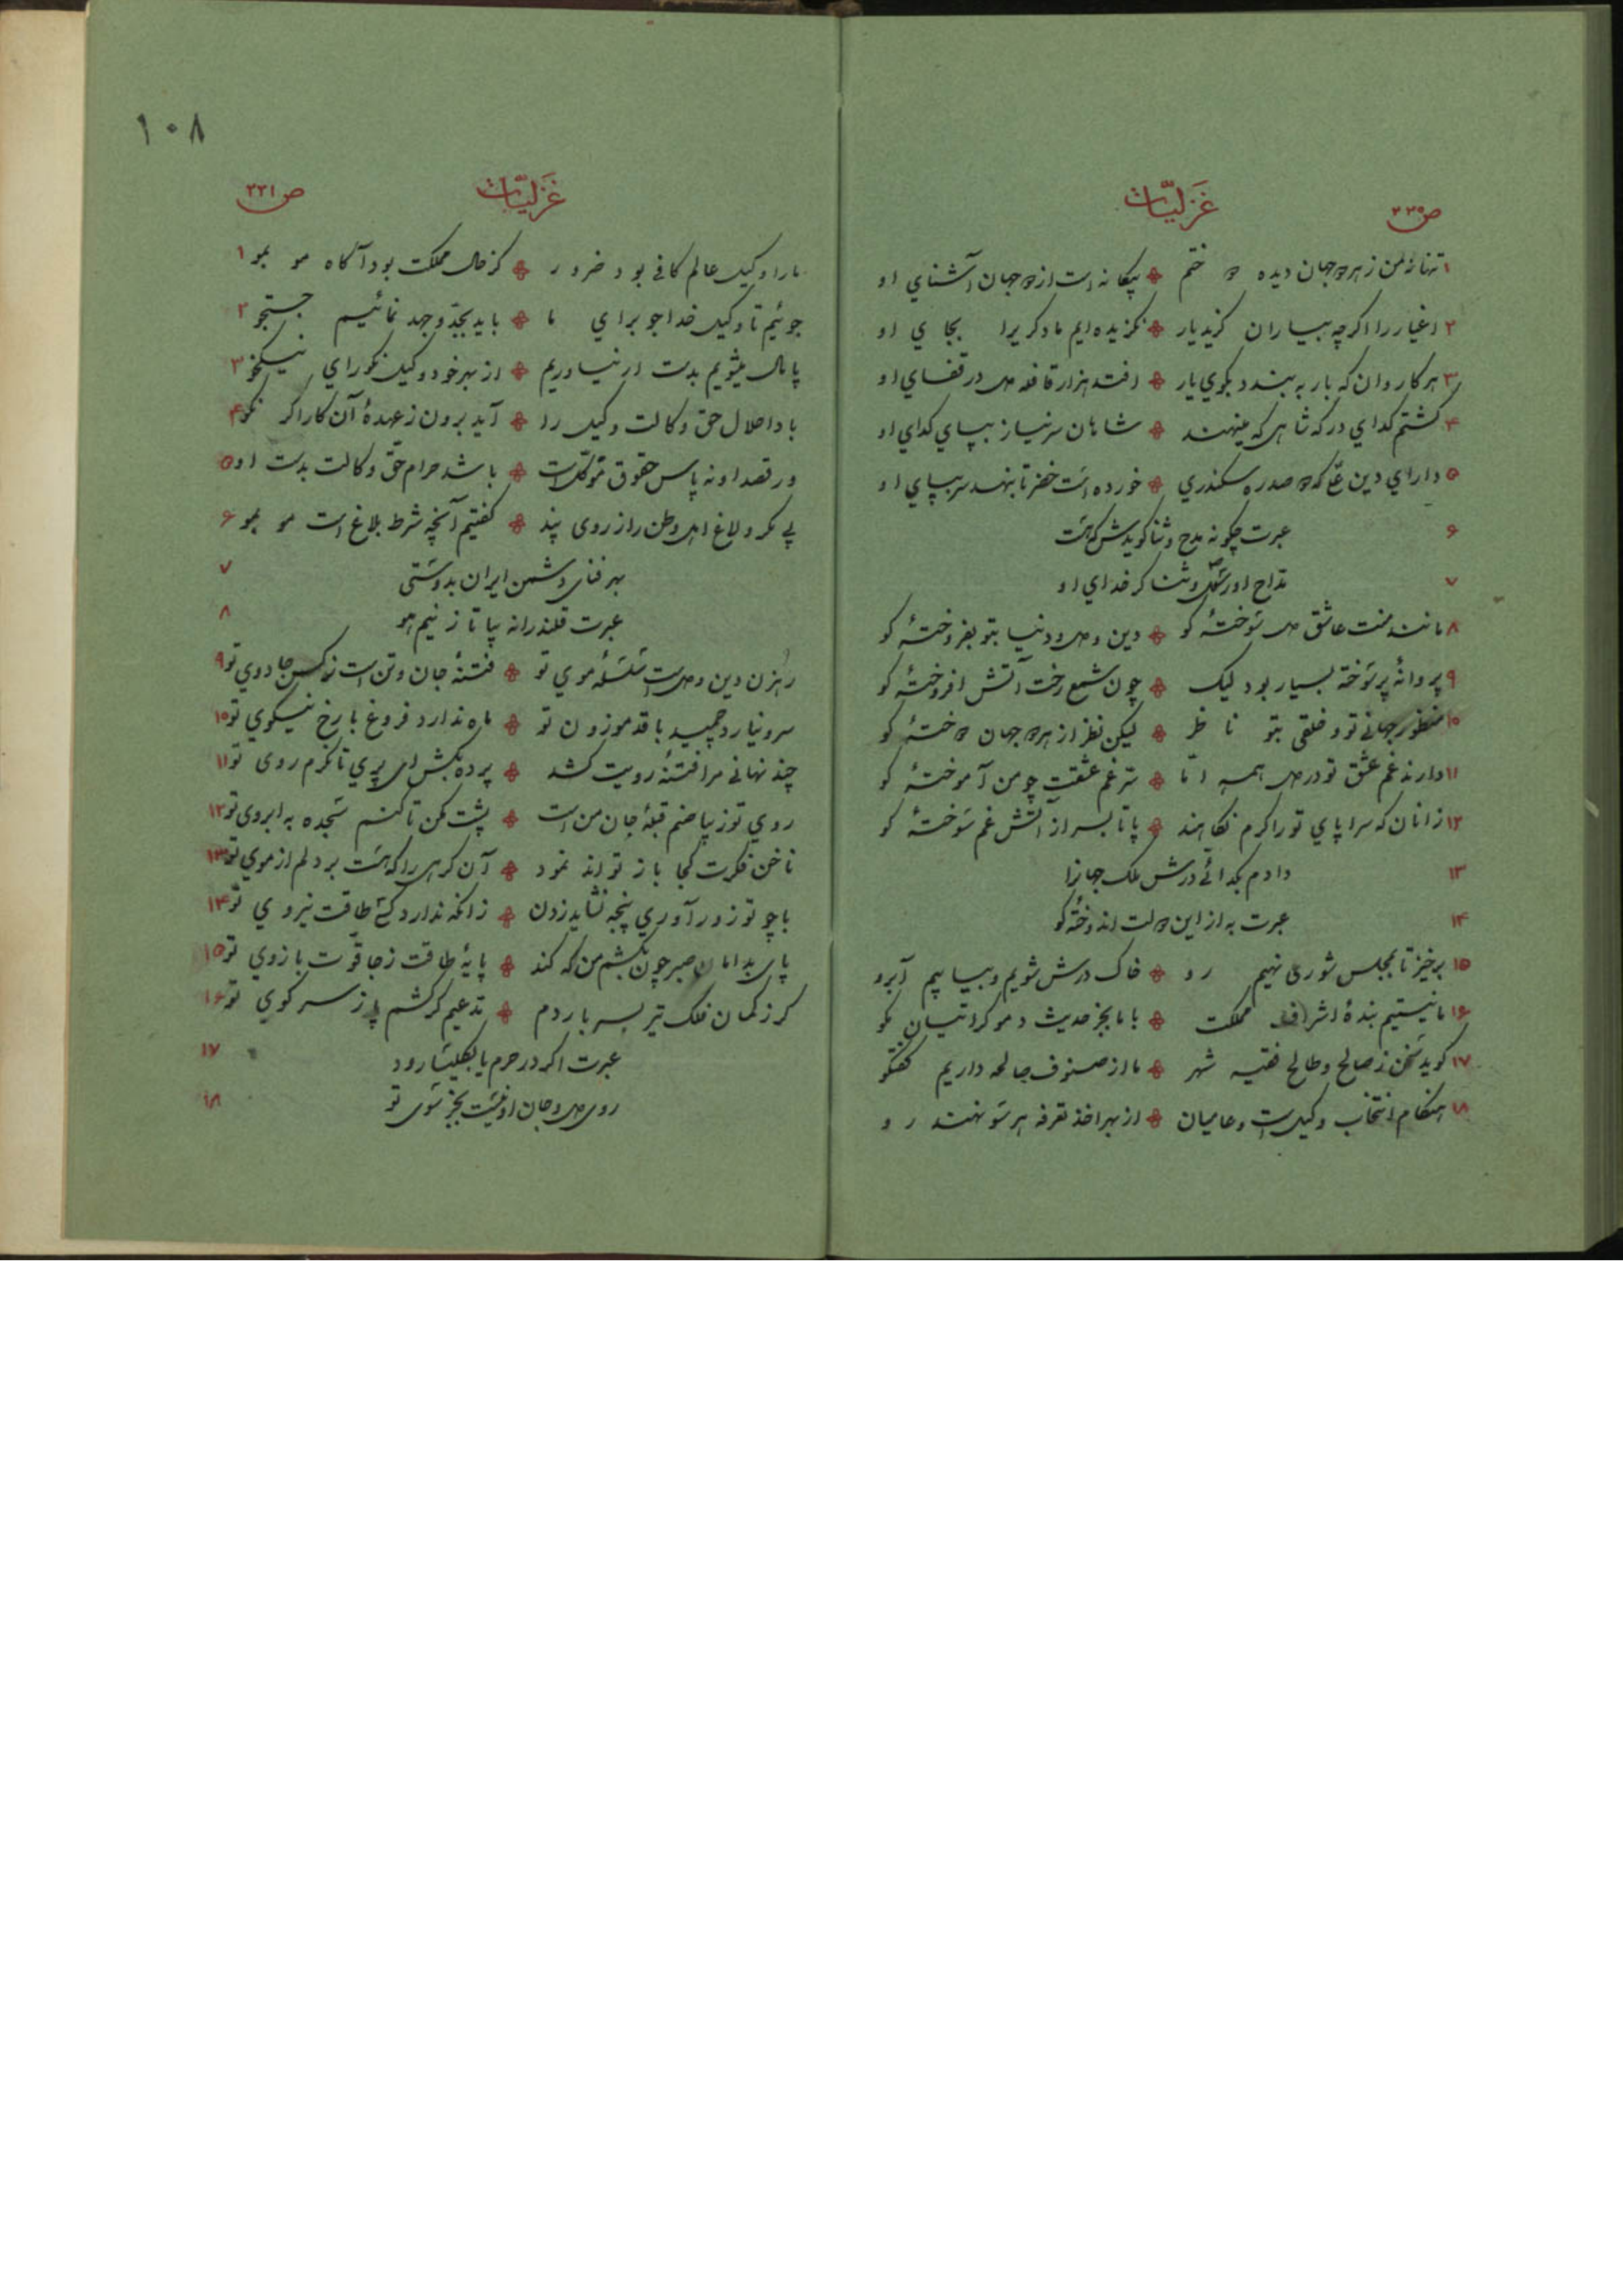 ص ۲۳۰
غزلیّات
۱ تنها نه من ز هر دو جهان دیده دوختم ❊ بیگانه است از دو جهان آشنای او
۲ اغیار را اگرچه بیاران گزید یار ❊ نگزیده‌ایم ما دگریرا بجای او
۳ هر کاروان که بار ببندد بکوی یار ❊ افتد هزار قافله دل در قفای او
۴ گشتم گدای درگه شاهی که مینهند ❊ شاهان سر نیاز بپای گدای او
۵ دارای دین علی که دو صد ره سکندری ❊ خورده است خضر تا بنهد سر بپای او
۶ عبرت چگونه مدح و ثنا گویدش که هست
۷ مدّاح او رسول و ثناگر خدای او
۸ مانند منت عاشق دل سوختهٔ کو ❊ دین و دل و دنیا بتو بفروختهٔ کو
۹ پروانهٔ پر سوخته بسیار بود لیک ❊ چون شمع رخت آتش افروختهٔ کو
۱۰ منظور جهانی تو و خلقی بتو ناظر ❊ لیکن نظر از هر دو جهان دوختهٔ کو
۱۱ دارند غم عشق تو در دل همه امّا ❊ سرّ غم عشقت چو من آموختهٔ کو
۱۲ زانان که سراپای تو را گرم نگاهند ❊ پا تا بسر از آتش غم سوختهٔ کو
۱۳ دادم بگدائی درش ملک جهانرا
۱۴ عبرت به از این دولت اندوختهٔ کو
۱۵ برخیز تا بمجلس شوری نهیم رو ❊ خاک درش شویم و بیابیم آبرو
۱۶ ما نیستیم بندهٔ اشراف مملکت ❊ با ما بجز حدیث دموکراتیان مگو
۱۷ گوید سخن ز صالح و طالح فقیه شهر ❊ ما از صنوف صالحه داریم گفتگو
۱۸ هنگام انتخاب وکیل است و عامیان ❊ از بهر اخذ تعرفه هر سو نهند رو
۱۰۸
غزلیّات
ص ۲۳۱
ما را وکیل عالم کافی بود ضرور ❊ کز حال مملکت بود آگاه مو بمو ۱
جوئیم تا وکیل خداجو برای ما ❊ باید بجدّ و جهد نمائیم جستجو ۲
پامال میشویم بدست ار نیاوریم ❊ از بهر خود وکیل نکورای نیکخو ۳
باد احلال حق وکالت وکیل را ❊ آید برون ز عهدهٔ آن کار اگر نکو ۴
ور قصد او نه پاس حقوق موکّل است ❊ باشد حرام حقّ وکالت بدست او ۵
بی مکر و لاغ اهل وطن را ز روی پند ❊ گفتیم آنچه شرط بلاغ است مو بمو ۶
بهر فنای دشمن ایران بدوستی ۷
عبرت قلندرانه بیا تا زنیم هو ۸
رهزن دین و دل است سلسلهٔ موی تو ❊ فتنهٔ جان و تن است نرگس جادوی تو ۹
سرو نیارد چمید با قد موزون تو ❊ ماه ندارد فروغ با رخ نیکوی تو ۱۰
چند نهانی مرا فتنهٔ رویت کشد ❊ پرده بکش ای پری تا نگرم روی تو ۱۱
روی تو زیبا صنم قبلهٔ جان من است ❊ پشت مکن تا کنم سجده به ابروی تو ۱۲
ناخن فکرت کجا باز تواند نمود ❊ آن گرهی را که هست بر دلم از موی تو ۱۳
با چو تو زورآوری پنجه نشاید زدن ❊ زانکه ندارد کسی طاقت نیروی تو ۱۴
پای بدامان صبر چون بکشم من که کند ❊ پایهٔ طاقت ز جا قوّت بازوی تو ۱۵
گر ز کمان فلک تیر بسر باردم ❊ مدّعیم گر کشم پا ز سر کوی تو ۱۶
عبرت اگر در حرم یا بکلیسا رود ۱۷
روی دل و جان او نیست بجز سوی تو ۱۸